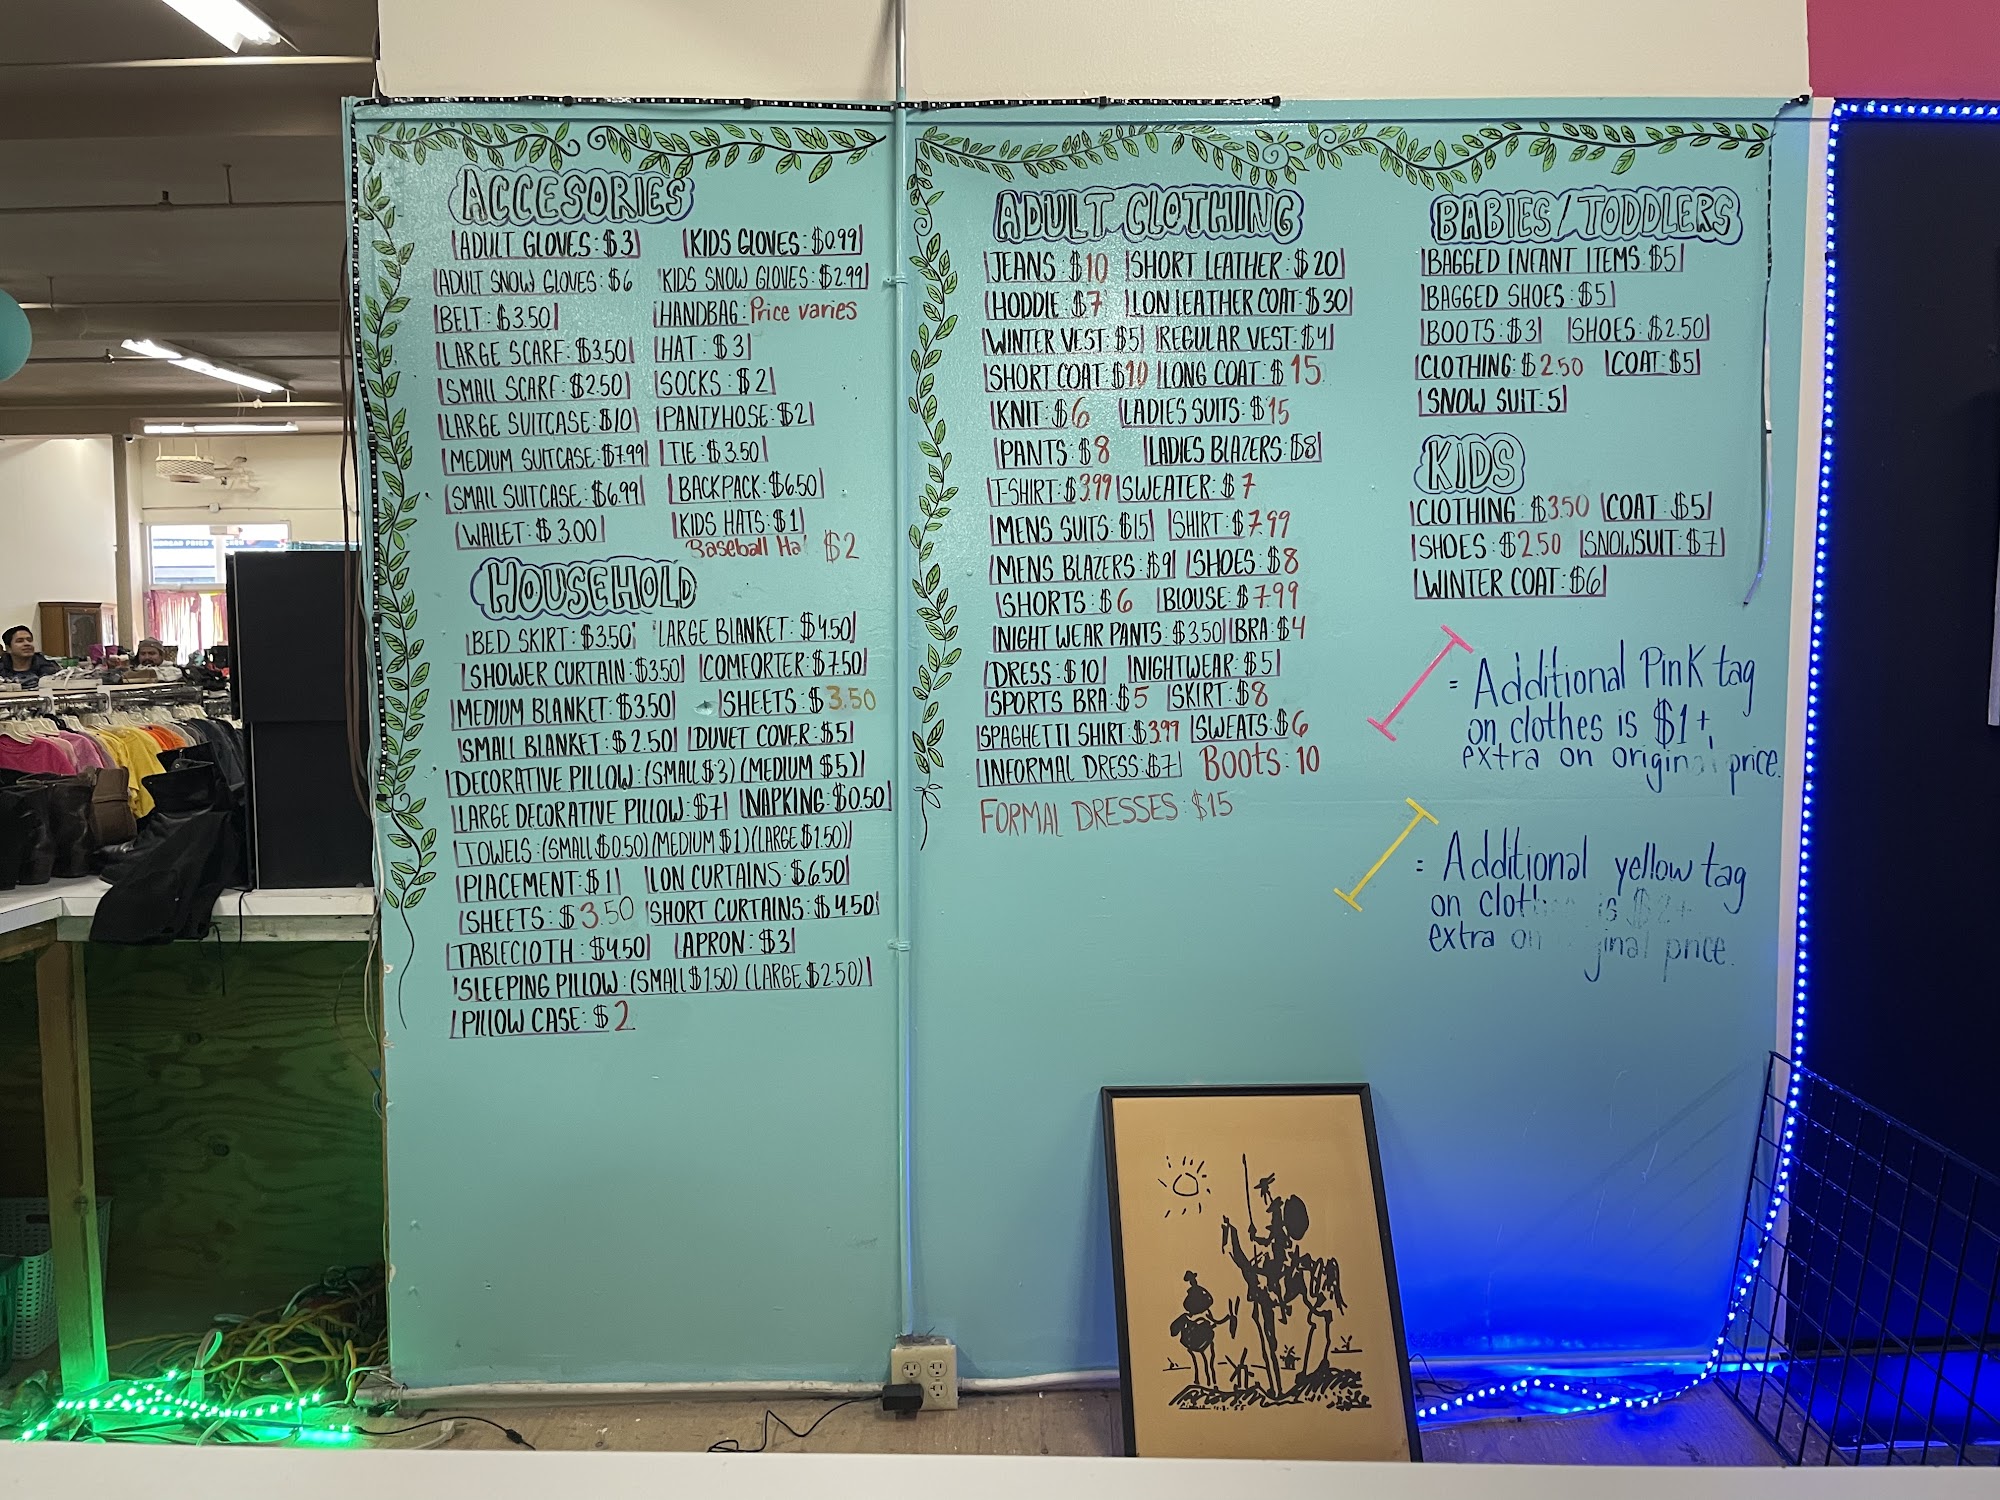 ACCESORIES
ADULT GLOVES: $3 KIDS GLOVES: $0.99
ADULT SNOW GLOVES: $6 KIDS SNOW GLOVES: $2.99
BELT: $3.50 HANDBAG: Price varies
LARGE SCARF: $3.50 HAT: $3
SMALL SCARF: $2.50 SOCKS: $2
LARGE SUITCASE: $10 PANTYHOSE: $2
MEDIUM SUITCASE: $7.99 TIE: $3.50
SMALL SUITCASE: $6.99 BACKPACK: $6.50
WALLET: $3.00 KIDS HATS: $1
Baseball Ha $2
HOUSEHOLD
BED SKIRT: $3.50 LARGE BLANKET: $4.50
SHOWER CURTAIN: $3.50 COMFORTER: $7.50
MEDIUM BLANKET: $3.50 SHEETS: $3.50
SMALL BLANKET: $2.50 DUVET COVER: $5
DECORATIVE PILLOW: (SMALL $3) (MEDIUM $5)
LARGE DECORATIVE PILLOW: $7 NAPKING: $0.50
TOWELS: (SMALL $0.50) (MEDIUM $1) (LARGE $1.50)
PLACEMENT: $1 LON CURTAINS: $6.50
SHEETS: $3.50 SHORT CURTAINS: $4.50
TABLECLOTH: $4.50 APRON: $3
SLEEPING PILLOW: (SMALL $1.50) (LARGE $2.50)
PILLOW CASE: $2
ADULT CLOTHING
JEANS: $10 SHORT LEATHER: $20
HODDIE: $7 LON LEATHER COAT: $30
WINTER VEST: $5 REGULAR VEST: $4
SHORT COAT: $10 LONG COAT: $15
KNIT: $6 LADIES SUITS: $15
PANTS: $8 LADIES BLAZERS: $8
T-SHIRT: $3.99 SWEATER: $7
MENS SUITS: $15 SHIRT: $7.99
MENS BLAZERS: $9 SHOES: $8
SHORTS: $6 BLOUSE: $7.99
NIGHT WEAR PANTS: $3.50 BRA: $4
DRESS: $10 NIGHTWEAR: $5
SPORTS BRA: $5 SKIRT: $8
SPAGHETTI SHIRT: $3.99 SWEATS: $6
INFORMAL DRESS: $7 BOOTS: 10
FORMAL DRESSES: $15
BABIES/TODDLERS
BAGGED INFANT ITEMS: $5
BAGGED SHOES: $5
BOOTS: $3 SHOES: $2.50
CLOTHING: $2.50 COAT: $5
SNOW SUIT: 5
KIDS
CLOTHING: $3.50 COAT: $5
SHOES: $2.50 SNOWSUIT: $7
WINTER COAT: $6
= Additional Pink tag
on clothes is $1+
extra on original price.
= Additional yellow tag
on cloth is $2+
extra on ginal price.